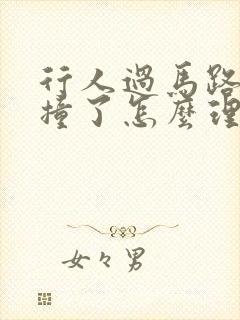 行人過馬路
撞了怎麼理
女々男